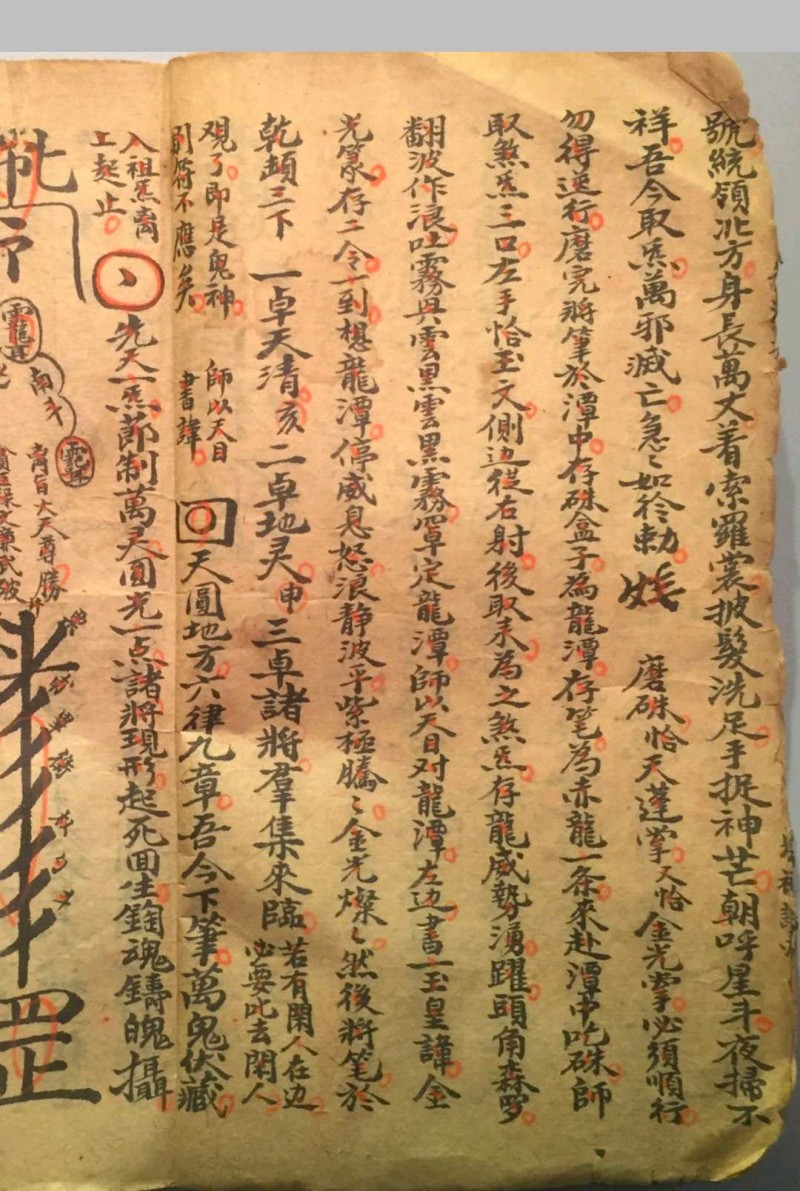 號統領北方身長萬丈着索羅裳披髮洗足手捉神芒朝呼星斗夜掃不
祥吾今取炁萬邪滅亡急〻如符勅 磨硃恰天蓬掌又恰金光掌必須順行
勿得逆行磨完將筆於潭中存硃盒子為龍潭存笔為赤龍一条來赴潭中吃硃師
取煞炁三口左手恰玉文側边從右射後取末為之煞炁存龍威勢湧躍頭角森罗
翻波作浪吐霧興雲黑雲黑霧罩定龍潭師以天目对龍潭左边書一玉皇諱金
光篆存二令一到想龍潭停威息怒浪静波平紫極騰〻金光燦〻然後將笔於
乾頡三下 一卓天清亥二卓地灵申三卓諸將羣集來臨若有閑人在边
必要叱去閑人
观了即是鬼神
則符不應矣
師以天目
書諱
天圓地方六律九章吾今下筆萬鬼伏藏
入祖炁离
工起止
先天一炁節制萬灵圓光一点諸將現形起死回生鍧魂鑄魄攝
雲龍
南斗
大天尊
勝
罡